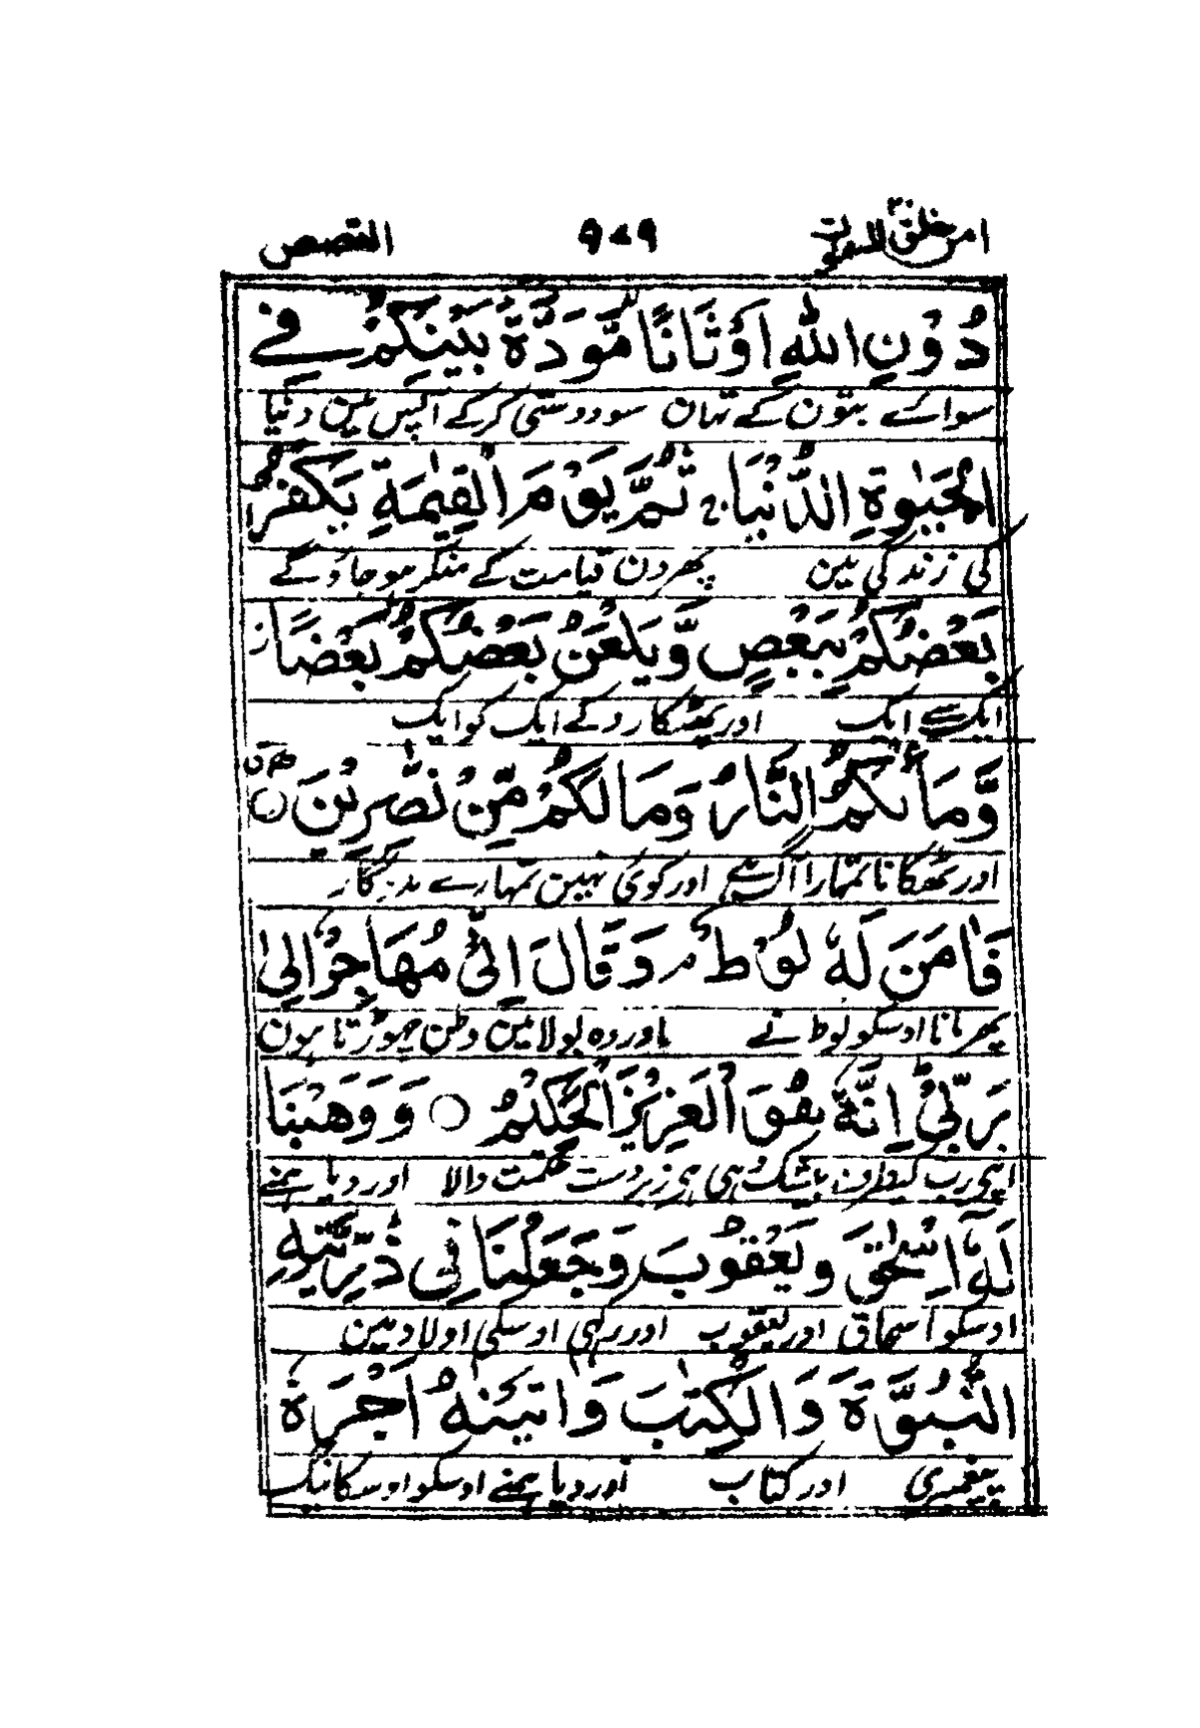 امن خلق السموت ۲۰ ۹۷۹ القصص
دُوْنِ اللّٰهِ اَوْثَانًا مَّوَدَّةَ بَيْنِكُمْ فِي
سوا کے بتون کے تہان سو دوستی کرکے آپس مین دنیا
الْحَيٰوةِ الدُّنْيَا ج ثُمَّ يَوْمَ الْقِيٰمَةِ يَكْفُرُ
کی زندگی مین پھر دن قیامت کے منکر ہو جاؤگے
بَعْضُكُمْ بِبَعْضٍ وَّيَلْعَنُ بَعْضُكُمْ بَعْضًا ز
ایک سے ایک اور پھٹکارو گے ایک کو ایک
وَّمَاْوٰىكُمُ النَّارُ وَمَا لَكُمْ مِّنْ نّٰصِرِيْنَ ۝
اور ٹھکانا تمہارا آگ ہے اور کوئی نہین تمہارے مددگار
فَاٰمَنَ لَهٗ لُوْطٌ م وَقَالَ اِنِّيْ مُهَاجِرٌ اِلٰى
پھر مانا اوسکو لوط نے اور وہ بولا مین وطن چھوڑتا ہون
رَبِّيْ ط اِنَّهٗ هُوَ الْعَزِيْزُ الْحَكِيْمُ ۝ وَوَهَبْنَا
اپنی رب کیطرف بیشک وہی ہی زبردست حکمت والا اور دیا ہمنے
لَهٗٓ اِسْحٰقَ وَيَعْقُوْبَ وَجَعَلْنَا فِيْ ذُرِّيَّتِهِ
اوسکو اسحاق اور یعقوب اور رکہی اوسکی اولاد مین
النُّبُوَّةَ وَالْكِتٰبَ وَاٰتَيْنٰهُ اَجْرَهٗ
پیغمبری اور کتاب اور دیا ہمنے اوسکو اوسکا نیگ